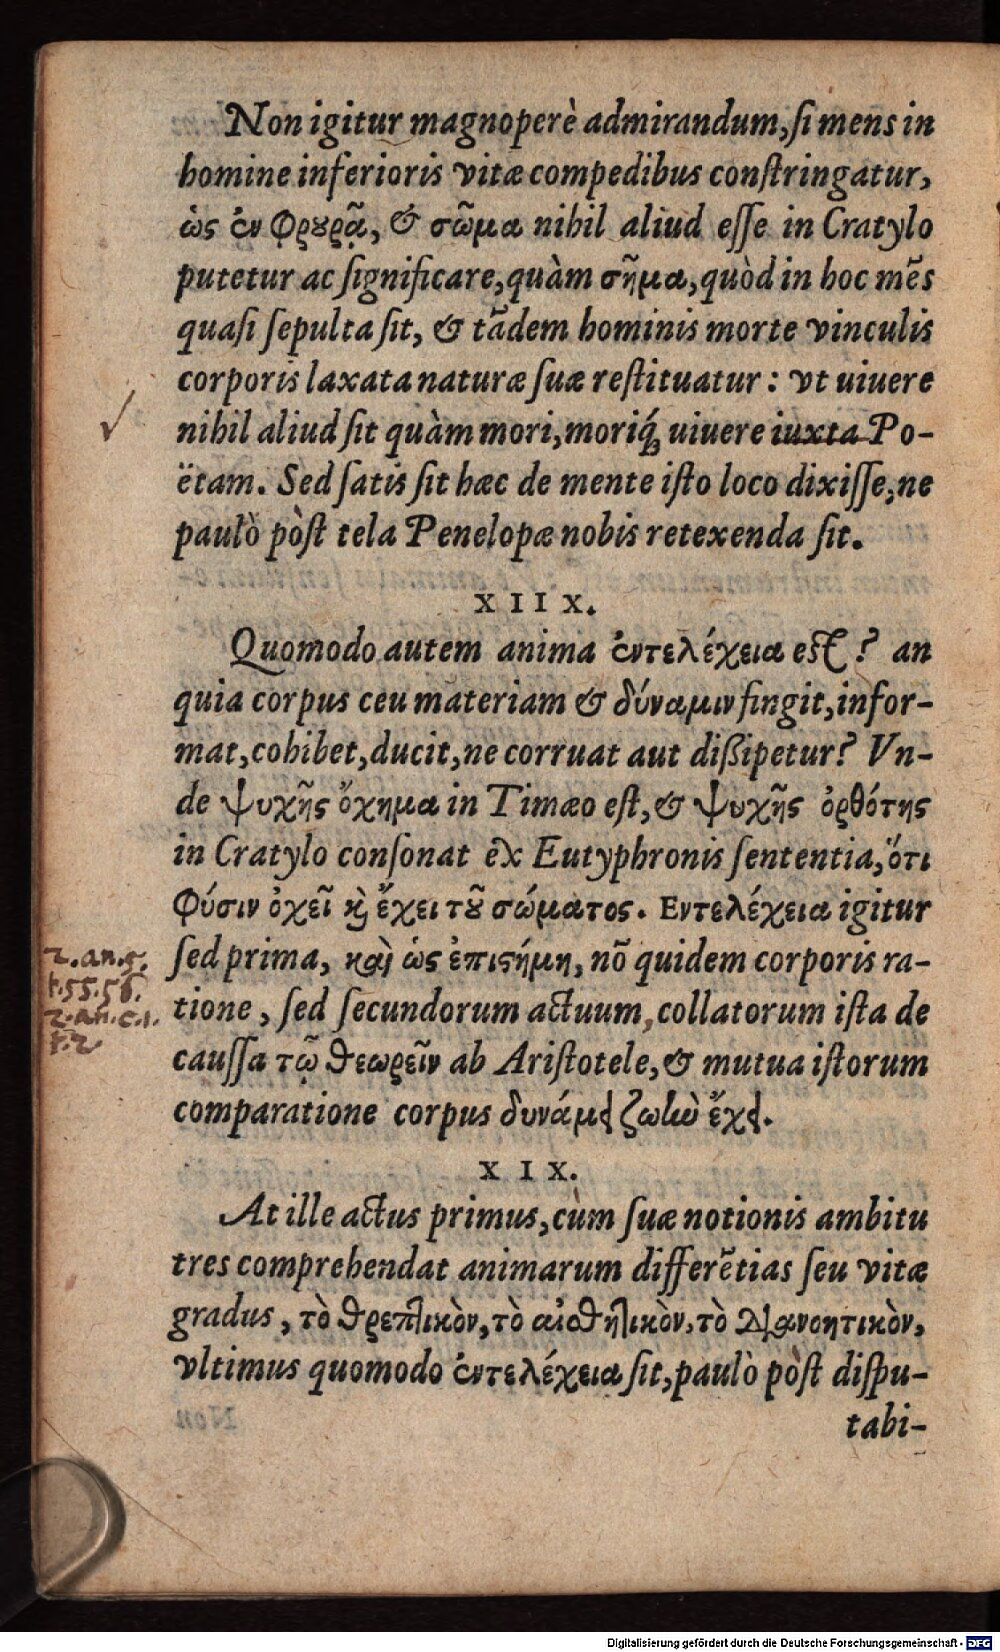 Non igitur magnoperè admirandum, si mens in
homine inferioris vitæ compedibus constringatur,
ὡς ἐν φρουρᾷ, & σῶμα nihil aliud esse in Cratylo
putetur ac significare, quàm σῆμα, quòd in hoc mēs
quasi sepulta sit, & tādem hominis morte vinculis
corporis laxata naturæ suæ restituatur: vt uiuere
nihil aliud sit quàm mori, moriq́; uiuere iuxta Po-
ëtam. Sed satis sit hæc de mente isto loco dixisse, ne
paulò pòst tela Penelopæ nobis retexenda sit.
XIIX.
Quomodo autem anima ἐντελέχεια est? an
quia corpus ceu materiam & δύναμιν fingit, infor-
mat, cohibet, ducit, ne corruat aut dißipetur? Vn-
de ψυχῆς ὄχημα in Timæo est, & ψυχῆς ὀρθότης
in Cratylo consonat ex Eutyphronis sententia, ὅτι
φύσιν ὀχεῖ καὶ ἔχει τοῦ σώματος. Εντελέχεια igitur
sed prima, καὶ ὡς ἐπιστήμη, nō quidem corporis ra-
tione, sed secundorum actuum, collatorum ista de
caussa τῷ θεωρεῖν ab Aristotele, & mutua istorum
comparatione corpus δυνάμει ζωὴν ἔχει.
2.an.5.
t.55.56.
2.an.c.1.
t.2
XIX.
At ille actus primus, cùm suæ notionis ambitu
tres comprehendat animarum differētias seu vitæ
gradus, τὸ θρεπτικὸν, τὸ αἰσθητικὸν, τὸ διανοητικὸν,
vltimus quomodo ἐντελέχεια sit, paulò pòst dispu-
tabi-
Digitalisierung gefördert durch die Deutsche Forschungsgemeinschaft - DFG